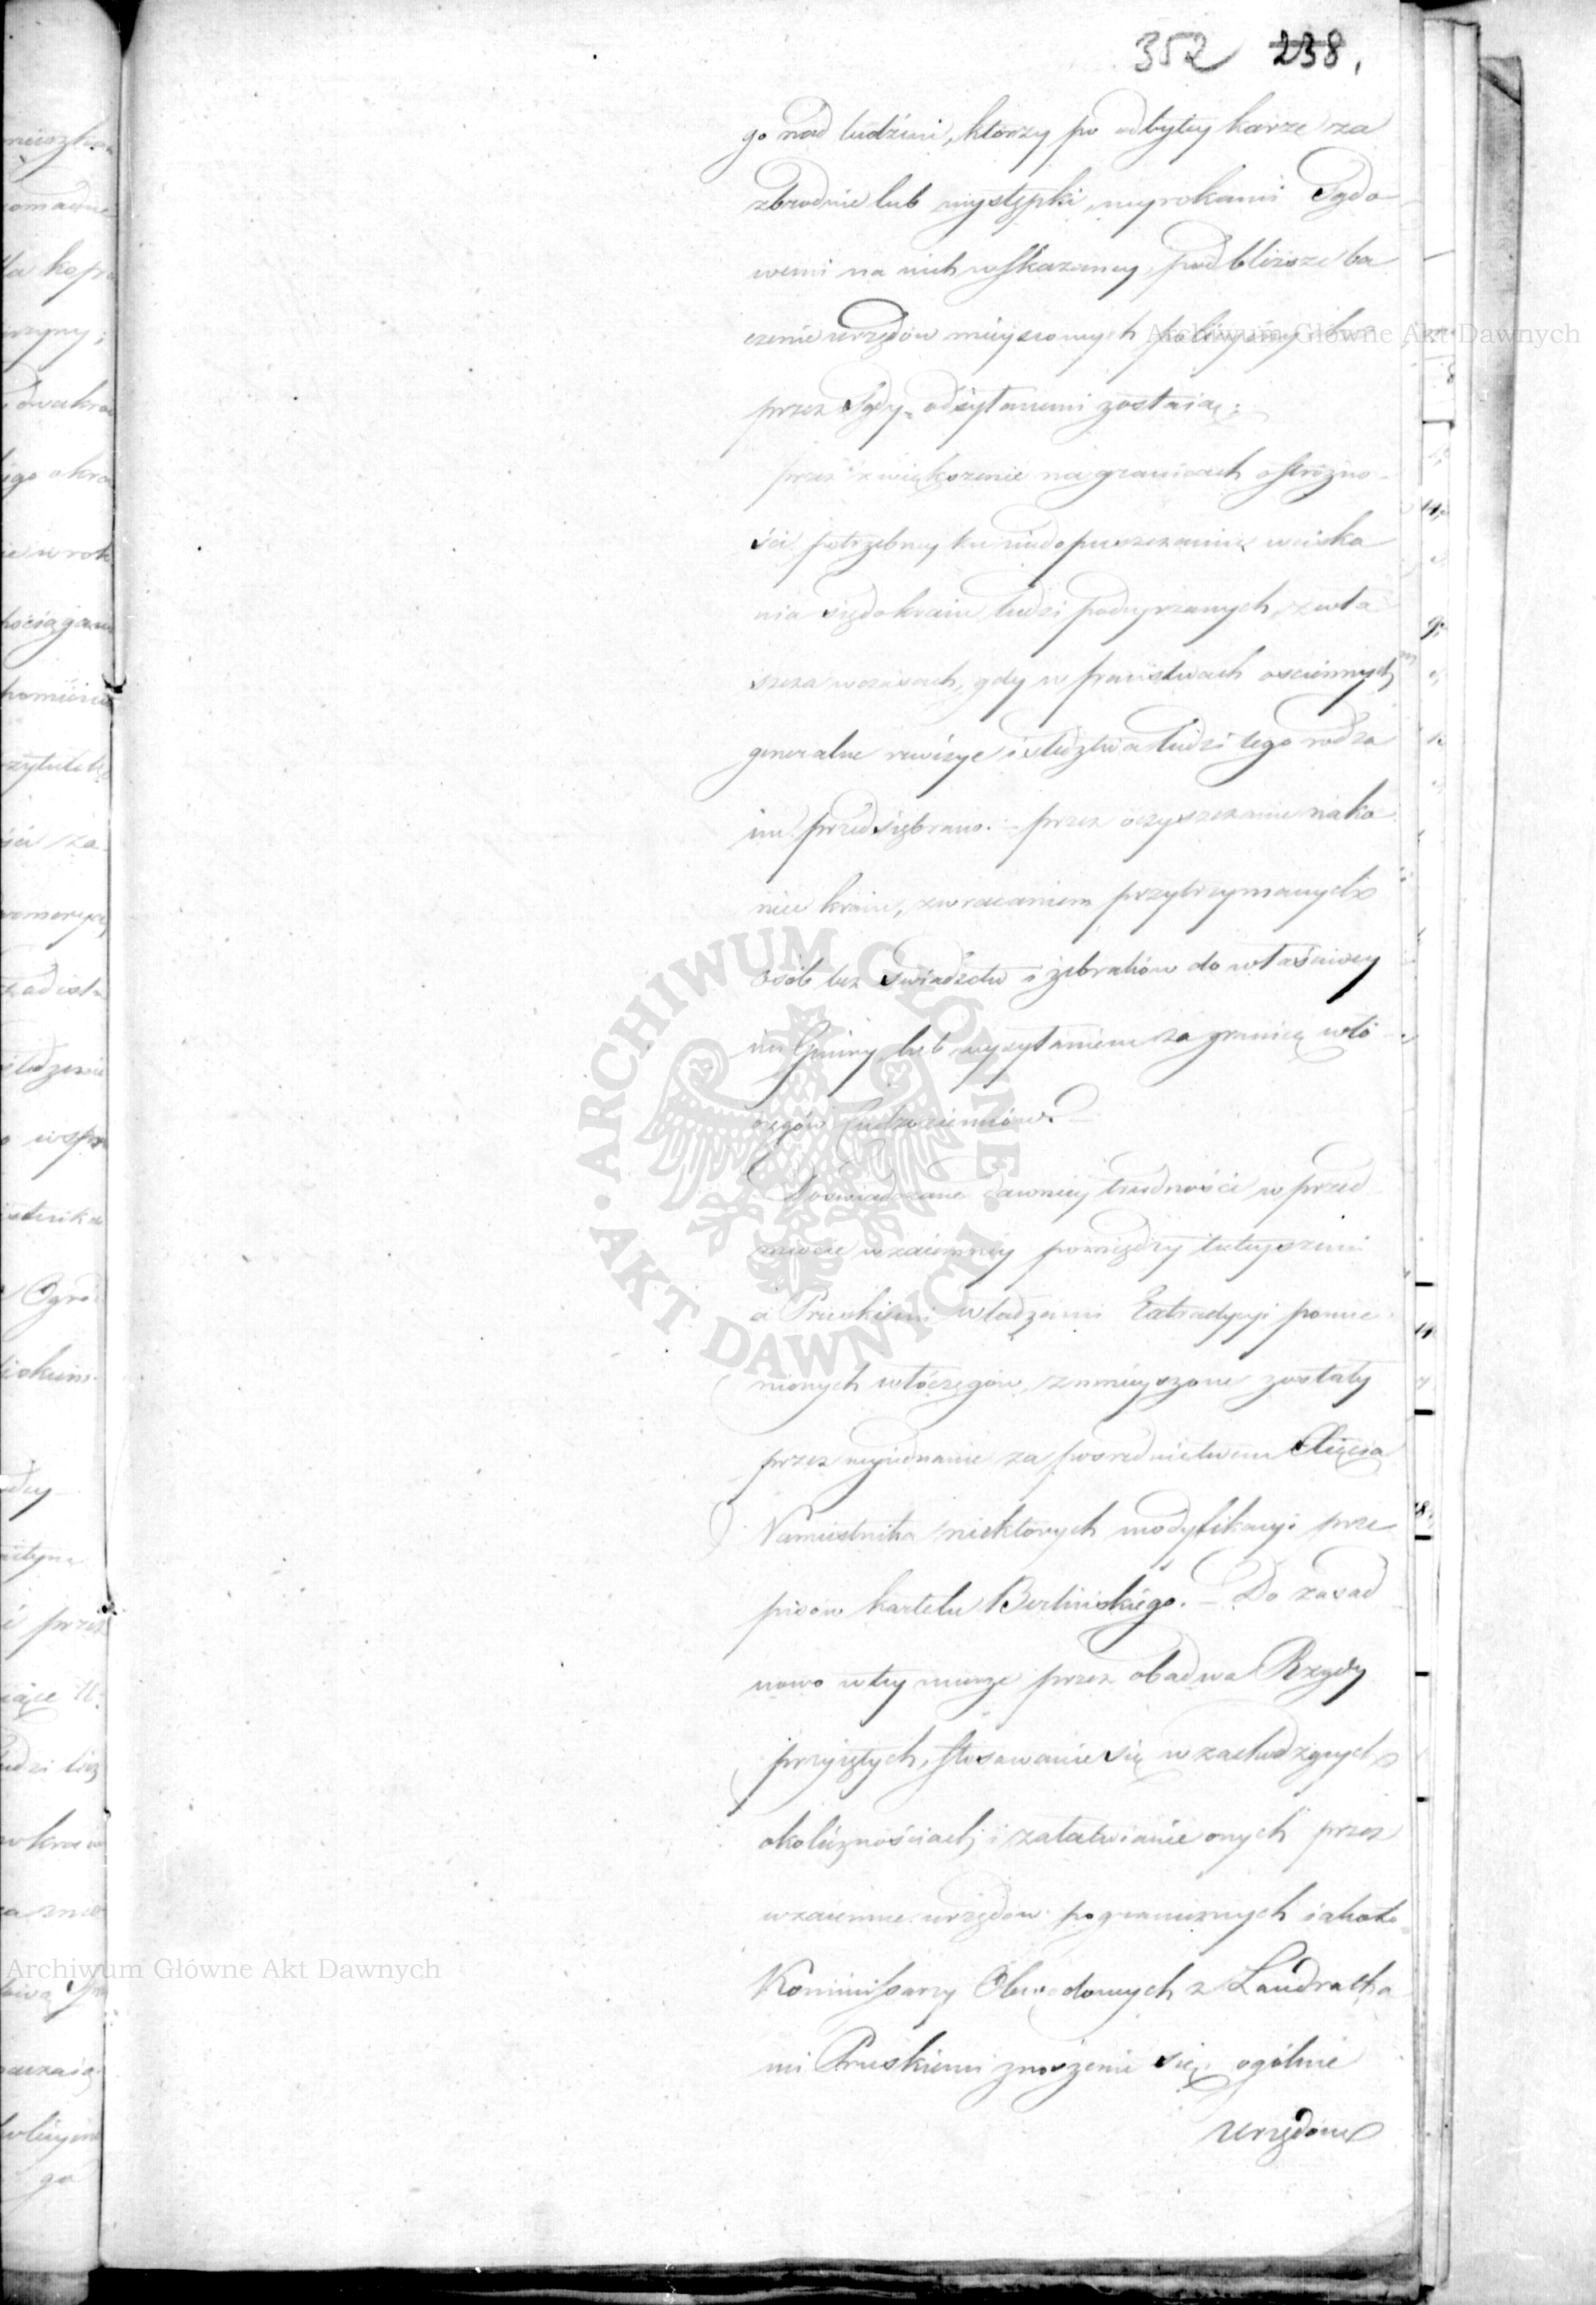 352 238.
go nad ludźmi, ktorzy po odbytey karze za
zbrodnie lub występki wyrokami Sądo
wemi na nich wskazaney, pod bliższe ba
czenie urzędów mieyscowych policyinych
przez Sądy odsyłanemi zostaią;
przez zwiększenie na granicach ostrożno-
ści potrzebney ku niedopuszczaniu wciska
nia się do kraiu ludzi podeyrzanych, zwła
szcza w czasach, gdy w państwach ościennych
generalne rewizye i śledztwa ludzi tego rodza
iu przedsiębrano. – przez oczyszczanie nako
niec kraiu, zwracaniem przytrzymanych
osób bez świadectw i żebraków do właściwey
im Gminy, lub wysyłaniem za granicę włó
częgów Cudzoziemców. –
Doświadczane dawniey trudności w przed
miocie wzaiemney pomiędzy tuteyszemi
a Pruskiemi władzami Extradycyi pomie
nionych włóczęgów, zmnieyszone zostały
przez wyiednanie za pośrednictwem Xięcia
Namiestnika niektórych modyfikacyi prze
pisów kartelu Berlińskiego. – Do zasad
nowo w tey mierze przez obadwa Rządy
przyiętych, stosowanie się w zachodzących
okolicznościach, i załatwianie onych przez
wzaiemne urzędów pogranicznych iakoto
Kommissarzy Obwodowych z Landratha
mi Pruskiemi znoszenie się, ogólnie
urzędom
Archiwum Główne Akt Dawnych
ARCHIWUM GŁÓWNE AKT DAWNYCH
Archiwum Główne Akt Dawnych